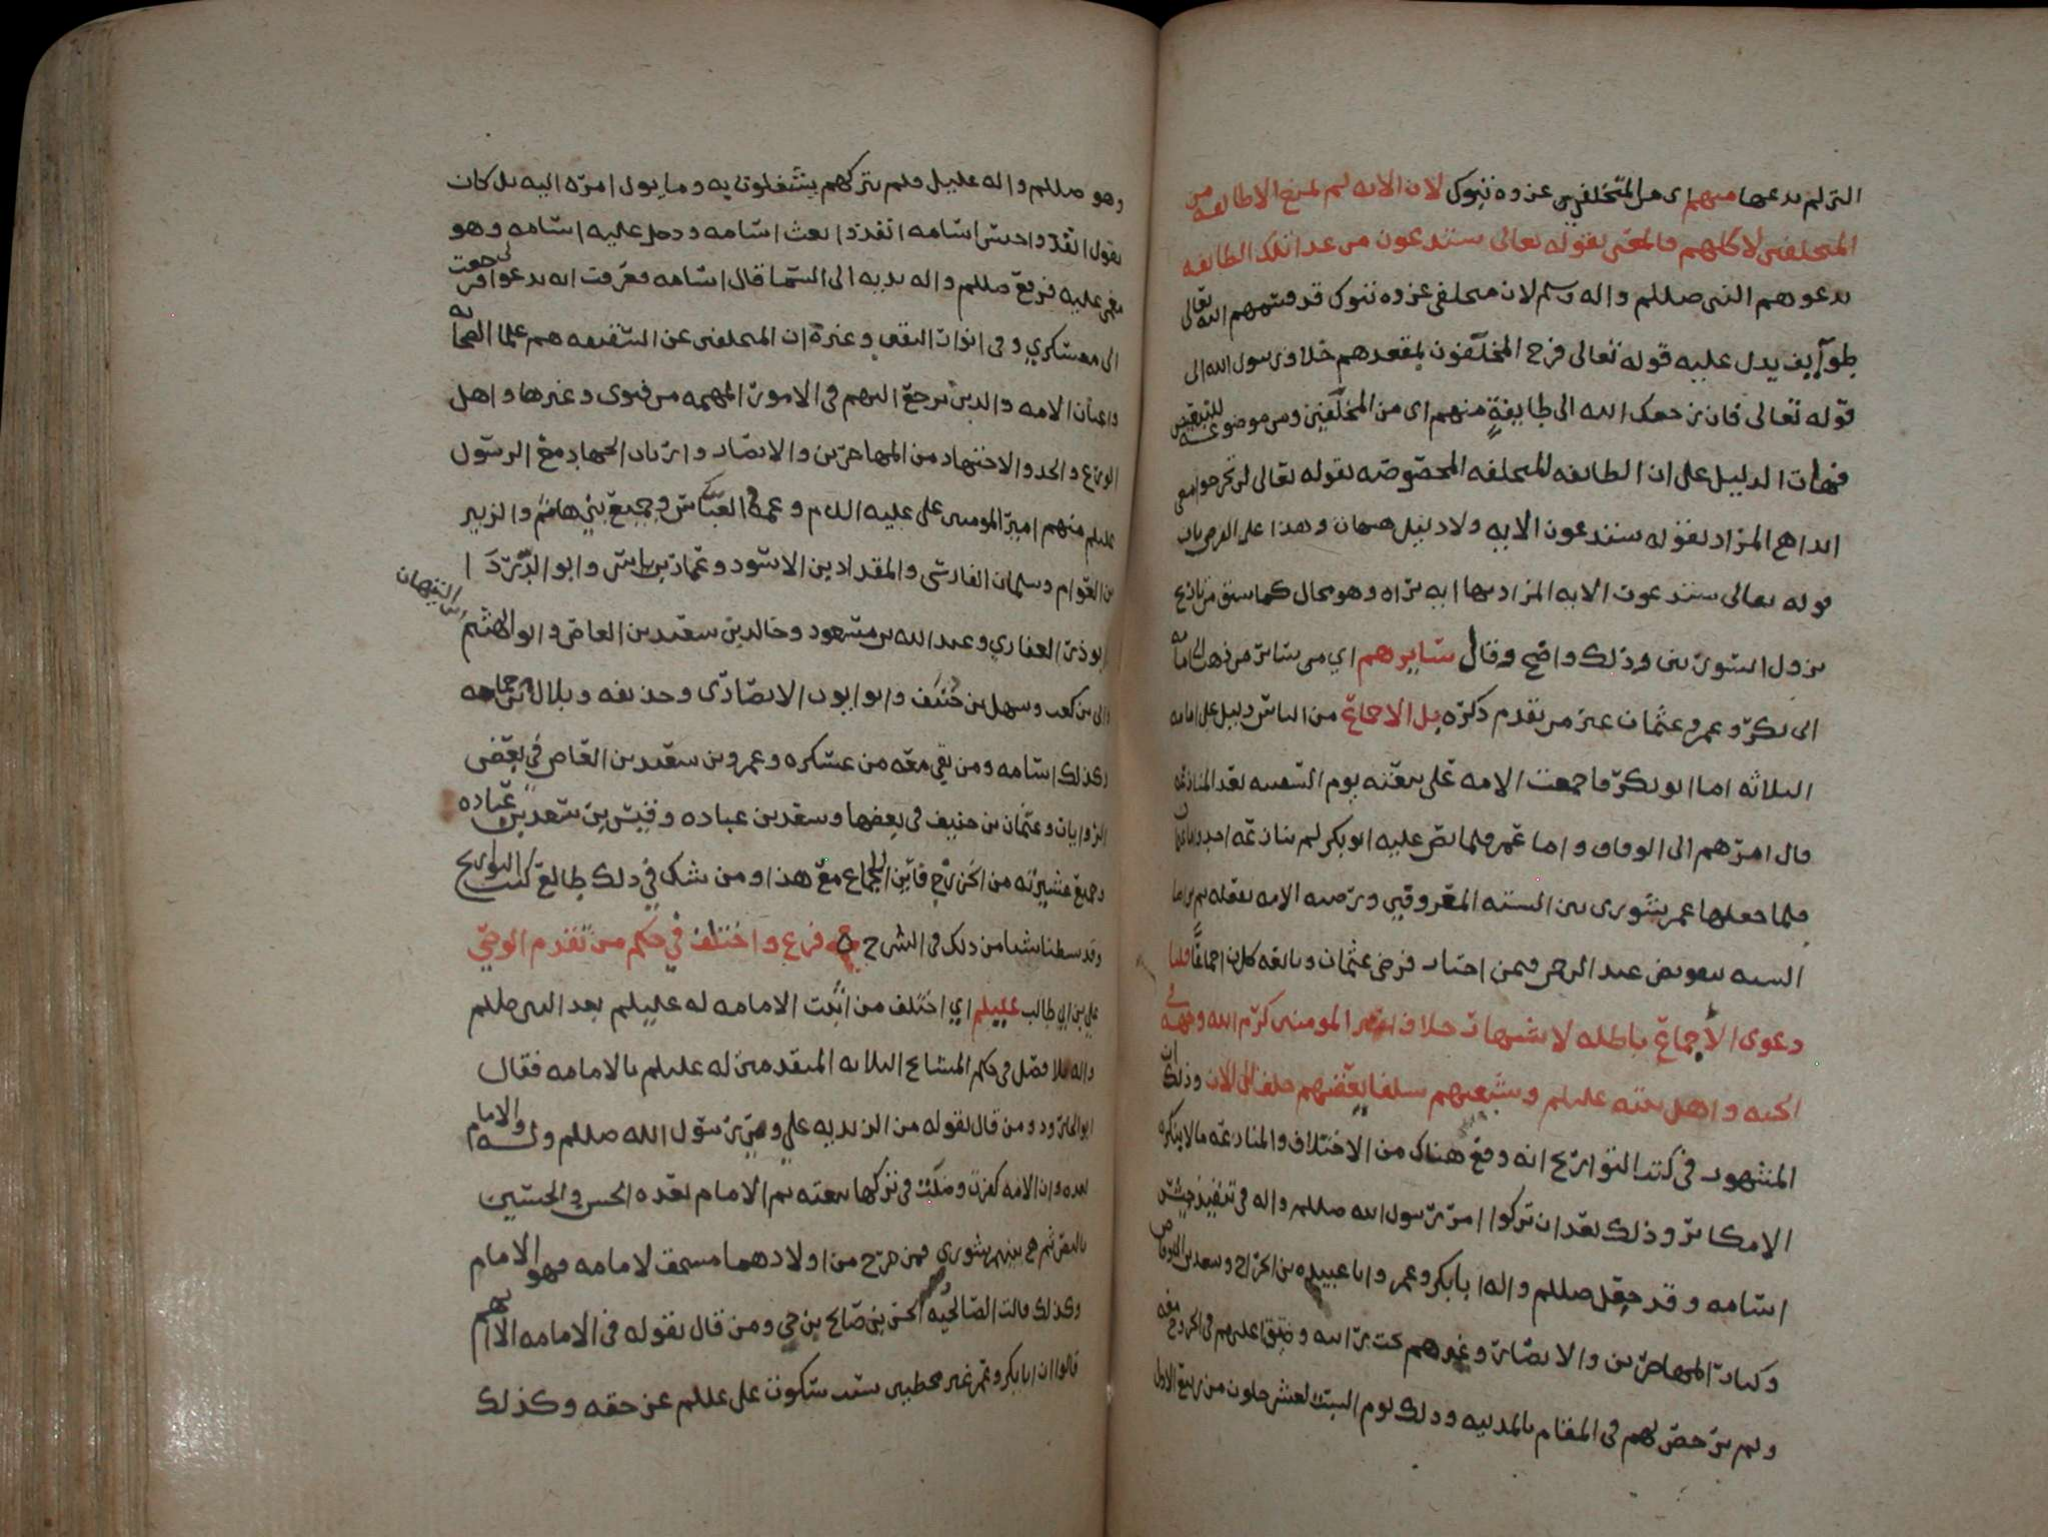 التي لم يدعها منهم اي من المتخلفين عن غزوة تبوك لان الايه لم تمنع الا طايفه من
المتخلفين لا كلهم فالمعني بقوله تعالى ستدعون من عدا تلك الطايفه
يدعوهم النبي صللم واله وسلم لان متخلفي غزوه تبوك قد قسمهم الله تعالى
طوايف يدل عليه قوله تعالى فرح المخلفون بمقعدهم خلاف رسول الله الى
قوله تعالى فان رجعك الله الى طايفةٍ منهم اي من المخلفين ومن موضوعة للتبعيض
فهات الدليل على ان الطايفه المتخلفه المخصوصه بقوله تعالى لن تخرجوا معي
ابدا هي المراد بقوله ستدعون الايه ولا دليل هنا وهذا على الفرض بان
قوله تعالى ستدعون الايه المراد بها ابه براه وهو محال كما سبق من تاريخ
نزول السورتين وذلك واضح وقال سايرهم اي من ساير من ذهب الى امامة
ابي بكر وعمر وعثمان غير من تقدم ذكره بل الاجماع من الناس دليل على امامه
الثلاثه اما ابو بكر فاجمعت الامه على بيعته يوم السقيفه بعد المنازعه
قال امرهم الى الوفاق واما عمر فلما نص عليه ابو بكر لم ينازعه احد واما عثمان
فلما جعلها عمر شورى بين السته المعروفين ورضيه الامه بفعله ثم رضا
السته بتفويض عبد الرحمن فيمن اختار فرضي عثمان وبايعه كان اجماعًا قلنا
دعوى الاجماع باطله لاشتهار خلاف امير المومنين كرم الله وجهه في
الجنه واهل بيته عليلم وشيعتهم سلفا بعضهم خلف الى الان وذلك ان
المشهور في كتب التواريخ انه وقع هناك من الاختلاف والمنازعه ما لا ينكره
الا مكابر وذلك بعد ان تركوا امر رسول الله صللم واله في تنفيذ جيش
اسامه وقد جعل صللم واله ابا بكر وعمر وابا عبيده بن الجراح وسعد بن ابي وقاص
وكبار المهاجرين والانصار وغيرهم تحت رايته وضيق عليهم في الخروج معه
ولم يرخص لهم في المقام بالمدينه وذلك يوم السبت لعشر خلون من ربيع الاول
وهو صللم واله عليل ولم يتركهم يشتغلون به وما يول امره اليه بل كان
يقول انفذوا جيش اسامه انفذوا بعث اسامه ودخل عليه اسامه وهو
مغمى عليه فرفع صللم واله يديه الى السما قال اسامه فعرفت انه يدعوا لي فرجعت
الى معسكري وفي اثرات البغي وغيره ان المتخلفين عن السقيفه هم علما الصحابه
واعيان الامه والذين يرجع اليهم في الامور المهمه من فتوى وغيرها واهل
الورع والجد والاجتهاد من المهاجرين والانصار وارباب الجهاد مع الرسول
عليلم منهم امير المومنين علي عليه السلام وعمه العباس وجميع بني هاشم والزبير
بن العوام وسلمان الفارسي والمقداد بن الاسود وعمار بن ياسر وابو الدردا
ابو ذر الغفاري وعبد الله بن مسعود وخالد بن سعيد بن العاص وابو الهيثم بن التيهان
وابي بن كعب وسهل بن حنيف وابو ايوب الانصاري وحذيفه وبلال بن حمامه
وكذلك اسامه ومن بقي معه من عسكره وعمرو بن سعيد بن العاص في بعض
الروايات وعثمان بن حنيف في بعضها وسعد بن عباده وقيس بن سعد بن عباده
وجميع عشيرته من الخزرج فاين الاجماع مع هذا ومن شك في ذلك طالع كتب التواريخ
وقد بسطنا شيا من ذلك في الشرح فرع واختلف في حكم من تقدم الوصي
علي بن ابي طالب عليلم اي اختلف من اثبت الامامه له عليلم بعد النبي صللم
واله بلا فصل في حكم المشايخ الثلاثه المتقدمين له عليلم بالامامه فقال
ابو الجارود ومن قال بقوله من الزيديه علي وصي رسول الله صللم والامام
بعده وان الامه كفرت وضلت في تركها بيعته ثم الامام بعده الحسن والحسين
بالنص ثم هي بينهم شورى فمن خرج من اولادهما مستحق للامامه فهو الامام
وكذلك قالت الصالحيه الحسن بن صالح بن حي ومن قال بقوله في الامامه الا انهم
قالوا ان ابا بكر وعمر غير مخطيين بسكوت علي عللم عن حقه وكذلك